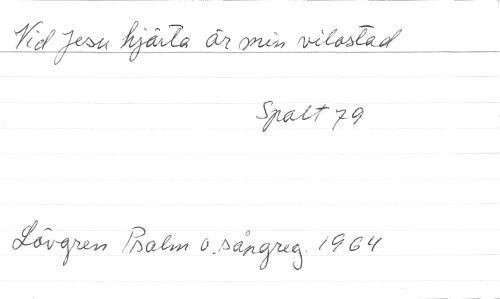 Vid Jesu hjärta är min vilostad
Spalt 79
Lövgren Psalm o. sångreg. 1964